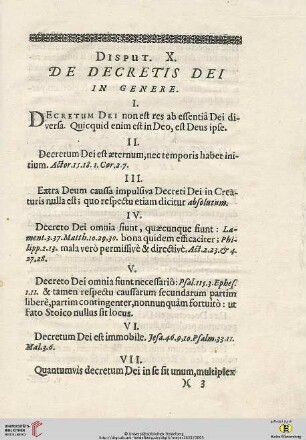 DISPUT. X.
DE DECRETIS DEI
IN GENERE.
I.
DECRETUM DEI non est res ab essentiâ Dei di-
versa. Quicquid enim est in Deo, est Deus ipse.
II.
Decretum Dei est æternum, nec temporis habet ini-
tium. Actor. 15. 18. 1. Cor. 2. 7.
III.
Extra Deum caussa impulsiva Decreti Dei in Crea-
turis nulla est: quo respectu etiam dicitur absolutum.
IV.
Decreto Dei omnia fiunt, quæcunque fiunt: La-
ment. 3. 37. Matth. 10. 29. 30. bona quidem efficaciter; Phi-
lipp. 2. 13. mala verò permissivè & directivè. Act. 2. 23. & 4.
27, 28.
V.
Decreto Dei omnia fiunt necessariò: Psal. 115. 3. Ephes.
1. 11. & tamen respectu caussarum secundarum partim
liberè, partim contingenter, nonnunquam fortuitò: ut
Fato Stoico nullus sit locus.
VI.
Decretum Dei est immobile. Jesa. 46. 9. 10. Psalm. 33. 11.
Mal. 3. 6.
VII.
Quantumvis decretum Dei in se sit unum, multiplex
)( 3
UNIVERSITÄTS-
BIBLIOTHEK
HEIDELBERG
© Universitätsbibliothek Heidelberg